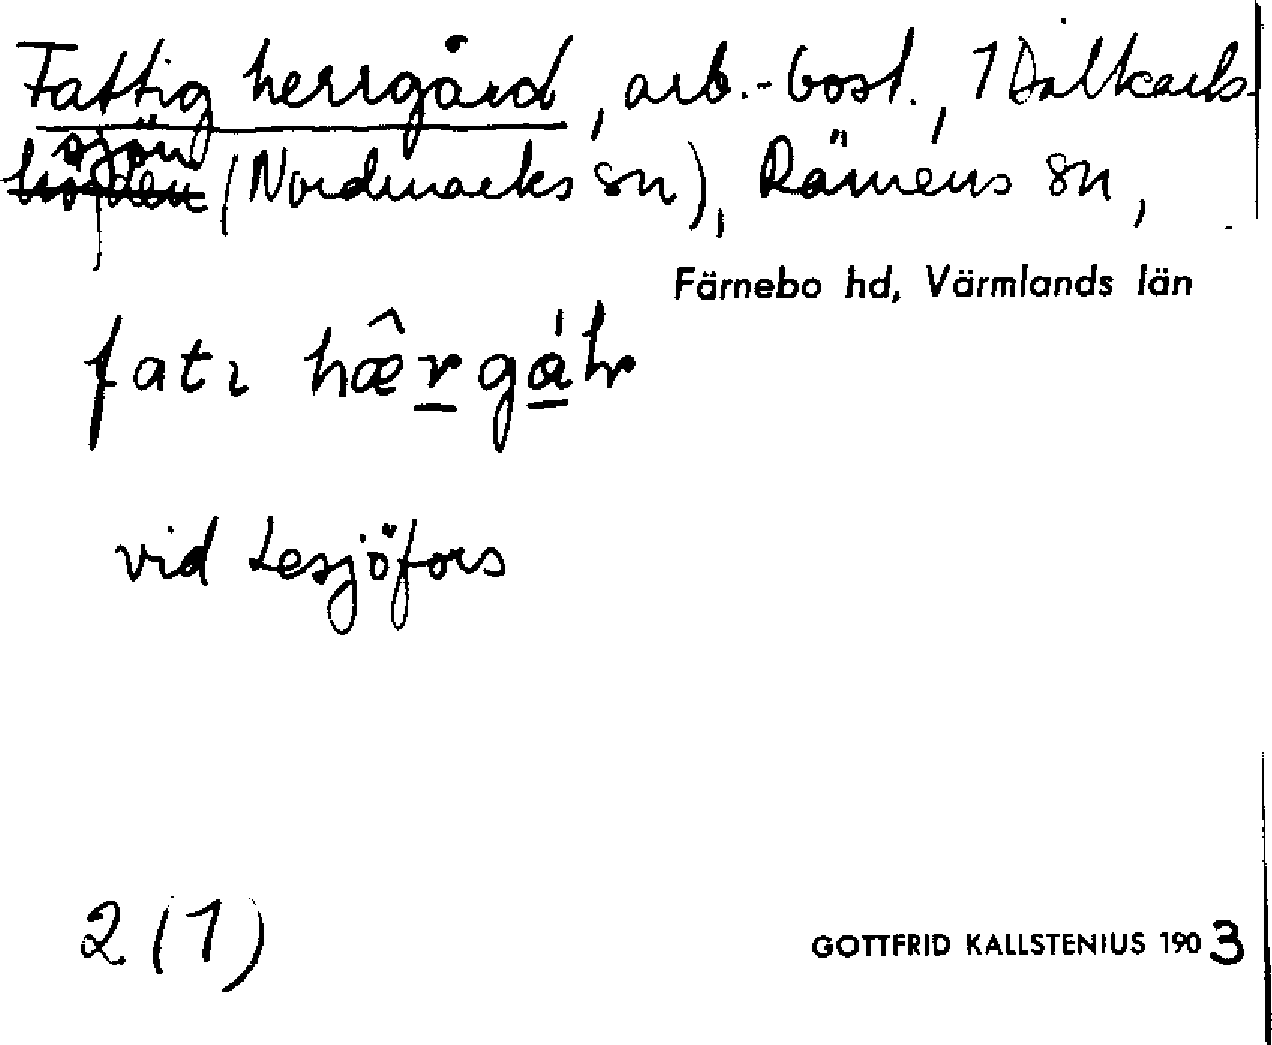 Fattig herrgård, arb.-bost., 1 Dalkarls-
sjön
höjden (Nordmarks sn), Rämens sn,
Färnebo hd, Värmlands län
fatı hæ̂r̲gá̲hr
vid Lesjöfors
2 (1)
GOTTFRID KALLSTENIUS 1903